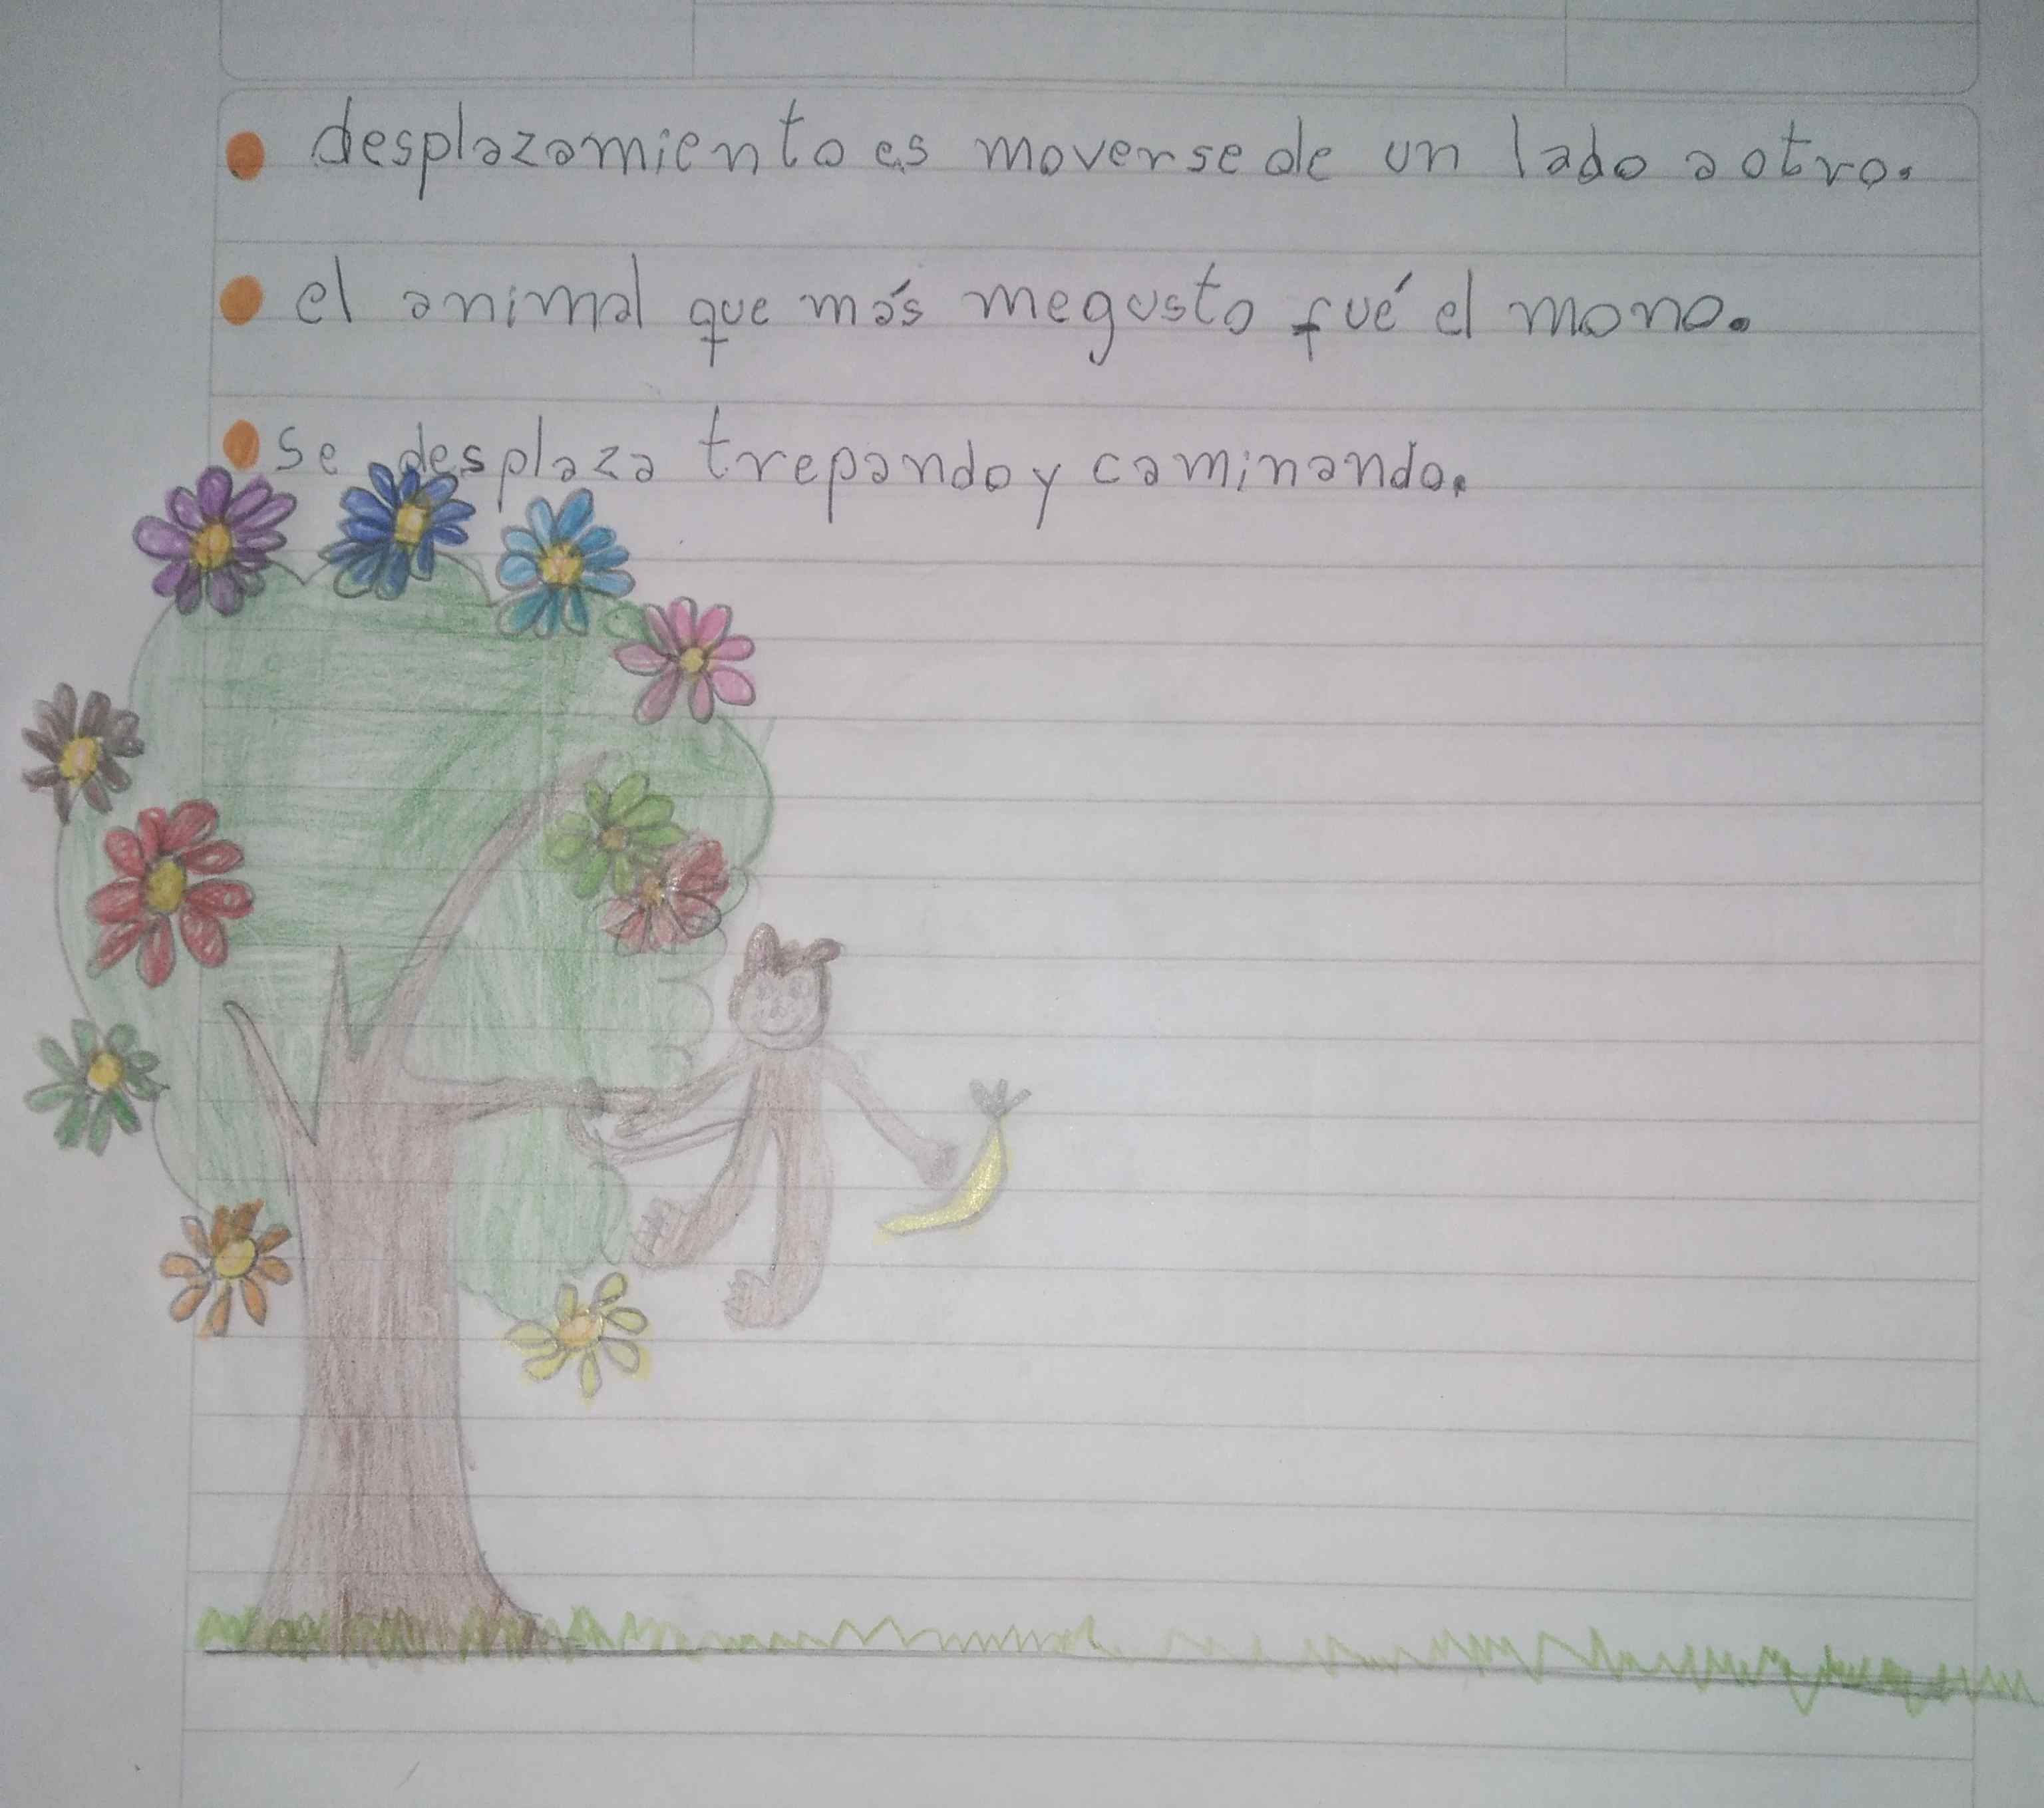 desplazamiento es moverse de un lado a otro.
el animal que más megusto fué el mono.
se desplaza trepando y caminando.